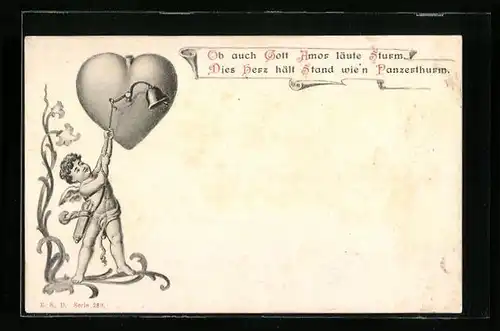 Ob auch Gott Amor läute Sturm,
Dies Herz hält Stand wie'n Panzerthurm.
E. S. D. Serie